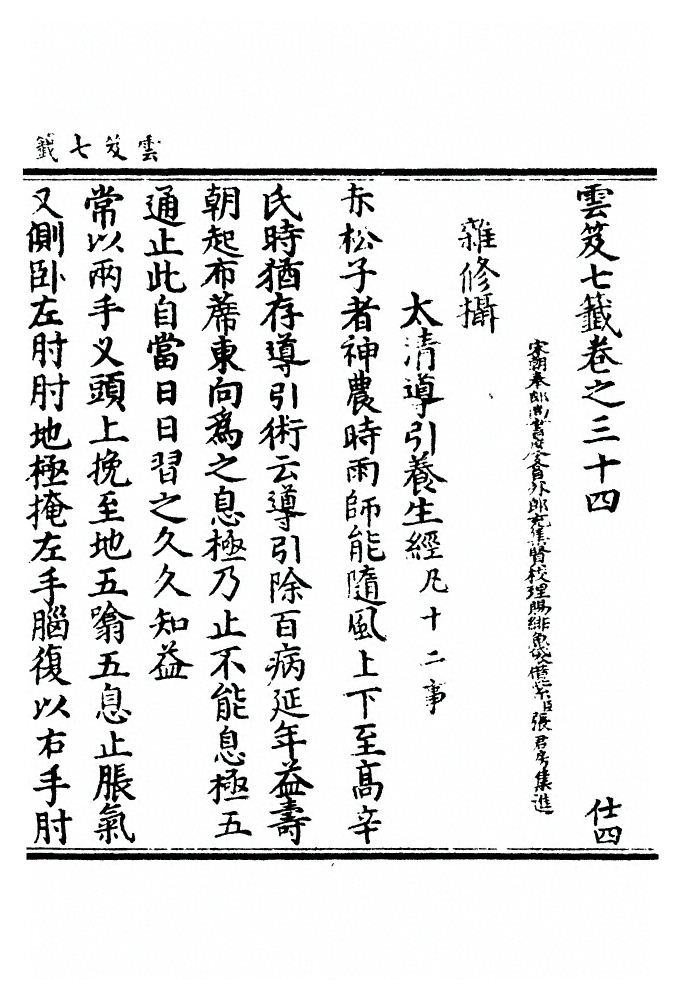 雲笈七籤
雲笈七籤卷之三十四 仕四
宋朝奉郎尚書度支員外郎充集賢校理賜緋魚袋借紫臣張君房集進
雜修攝
太清導引養生經凡十二事
赤松子者神農時雨師能隨風上下至高辛
氏時猶存導引術云導引除百病延年益壽
朝起布蓆東向爲之息極乃止不能息極五
通止此自當日日習之久久知益
常以兩手义頭上挽至地五噏五息止脹氣
又側卧左肘肘地極掩左手腦復以右手肘